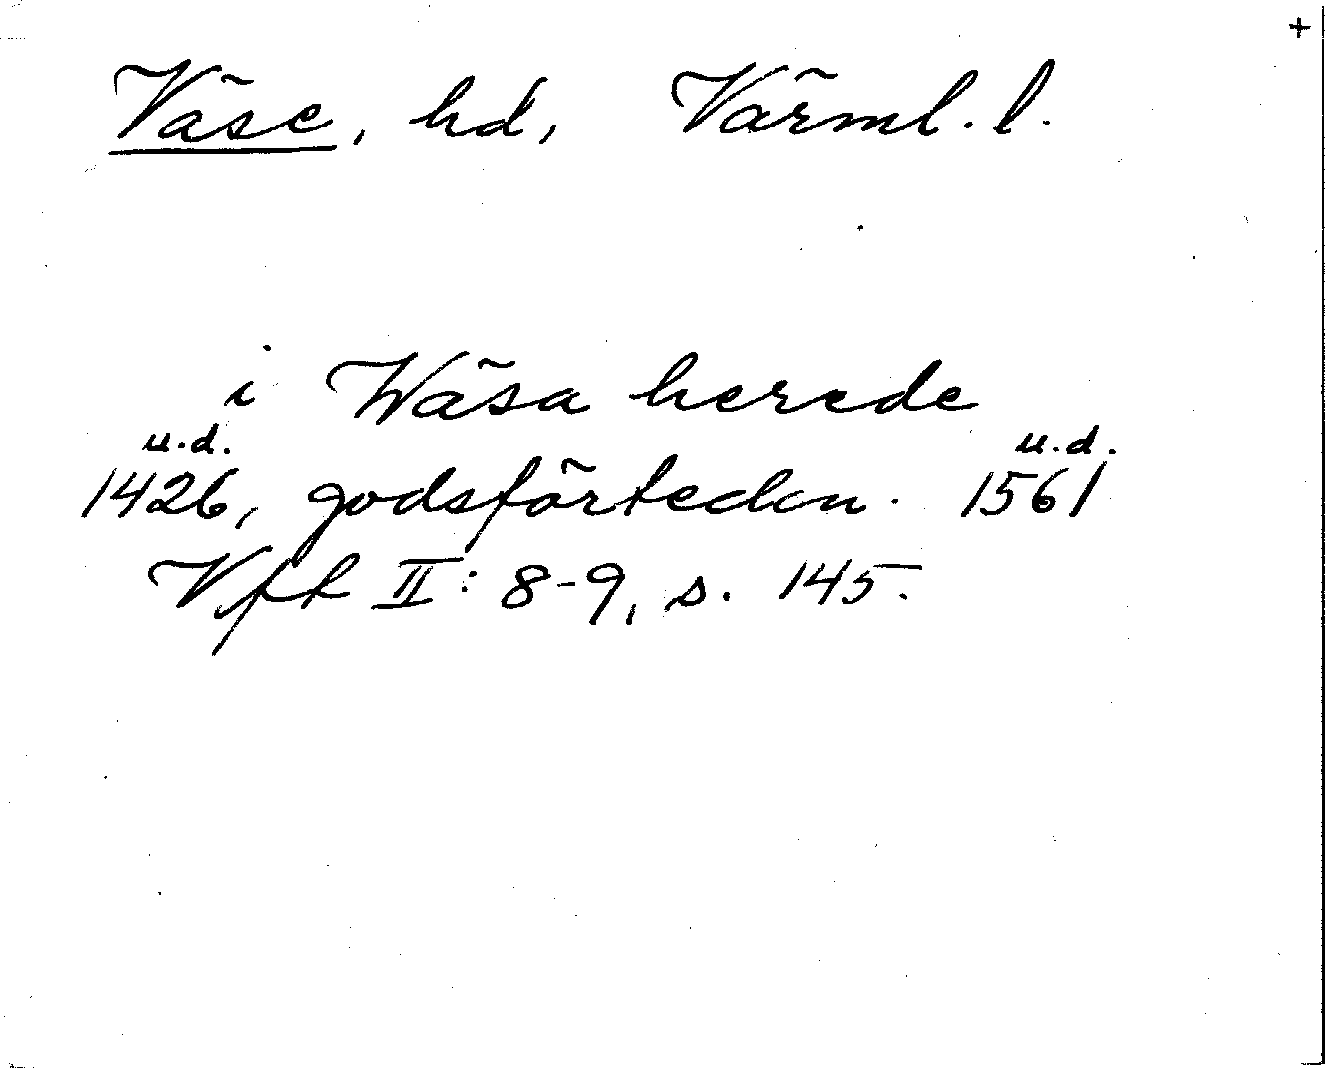 +
Väse, hd, Värml. l.
i Wäsa herede
u.d. u.d.
1426, godsförteckn. 1561
Vfk II: 8-9, s. 145.